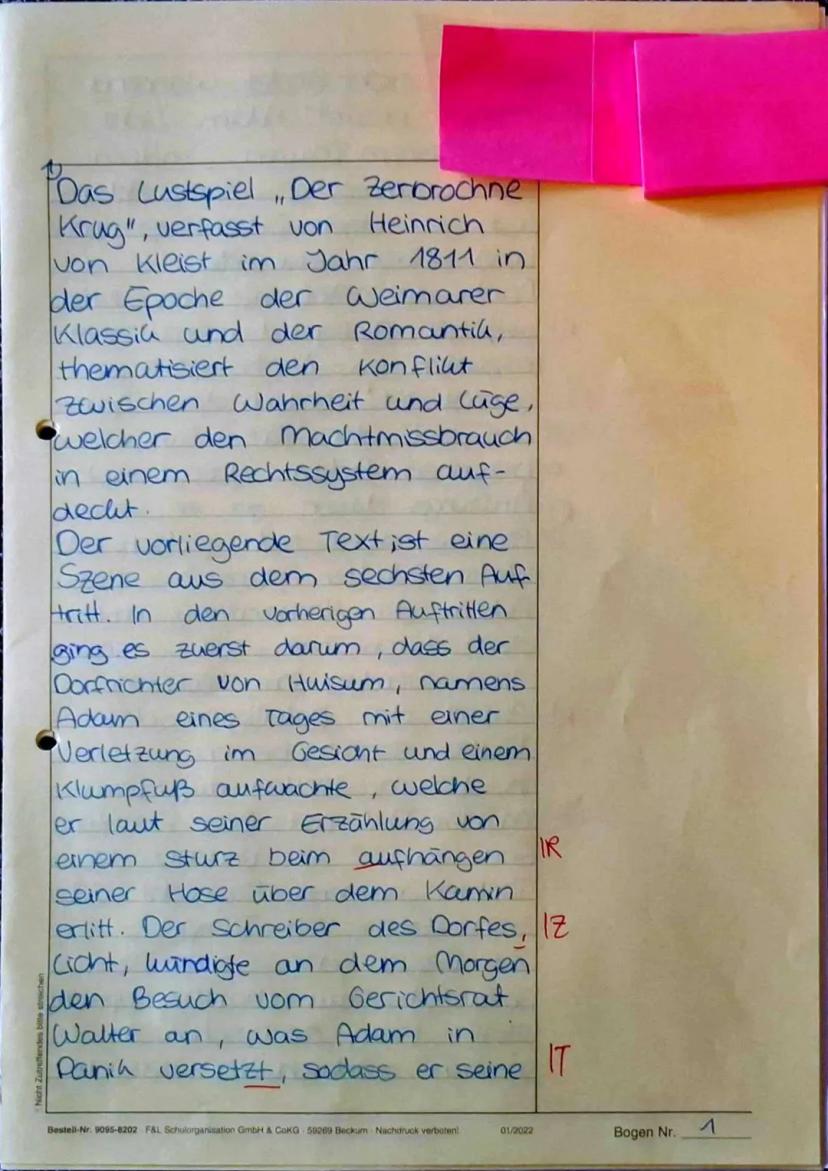 Das Lustspiel „Der zerbrochne
Krug", verfasst von Heinrich
von Kleist im Jahr 1811 in
der Epoche der Weimarer
Klassik und der Romantik,
thematisiert den Konflikt
zwischen Wahrheit und Lüge,
welcher den Machtmissbrauch
in einem Rechtssystem auf-
deckt.
Der vorliegende Text ist eine
Szene aus dem sechsten Auf
tritt. In den vorherigen Auftritten
ging es zuerst darum, dass der
Dorfrichter von Huisum, namens
Adam eines Tages mit einer
Verletzung im Gesicht und einem
Klumpfuß aufwachte, welche
er laut seiner Erzählung von
einem Sturz beim aufhängen IR
seiner Hose über dem Kamin
erlitt. Der Schreiber des Dorfes, IZ
Licht, kündigte an dem Morgen
den Besuch vom Gerichtsrat
Walter an, was Adam in
Panik versetzt, sodass er seine IT
¹ Nicht Zutreffendes bitte streichen
Bestell-Nr. 9095-8202 · F&L Schulorganisation GmbH & CoKG · 59269 Beckum · Nachdruck verboten! 01/2022 Bogen Nr. 1